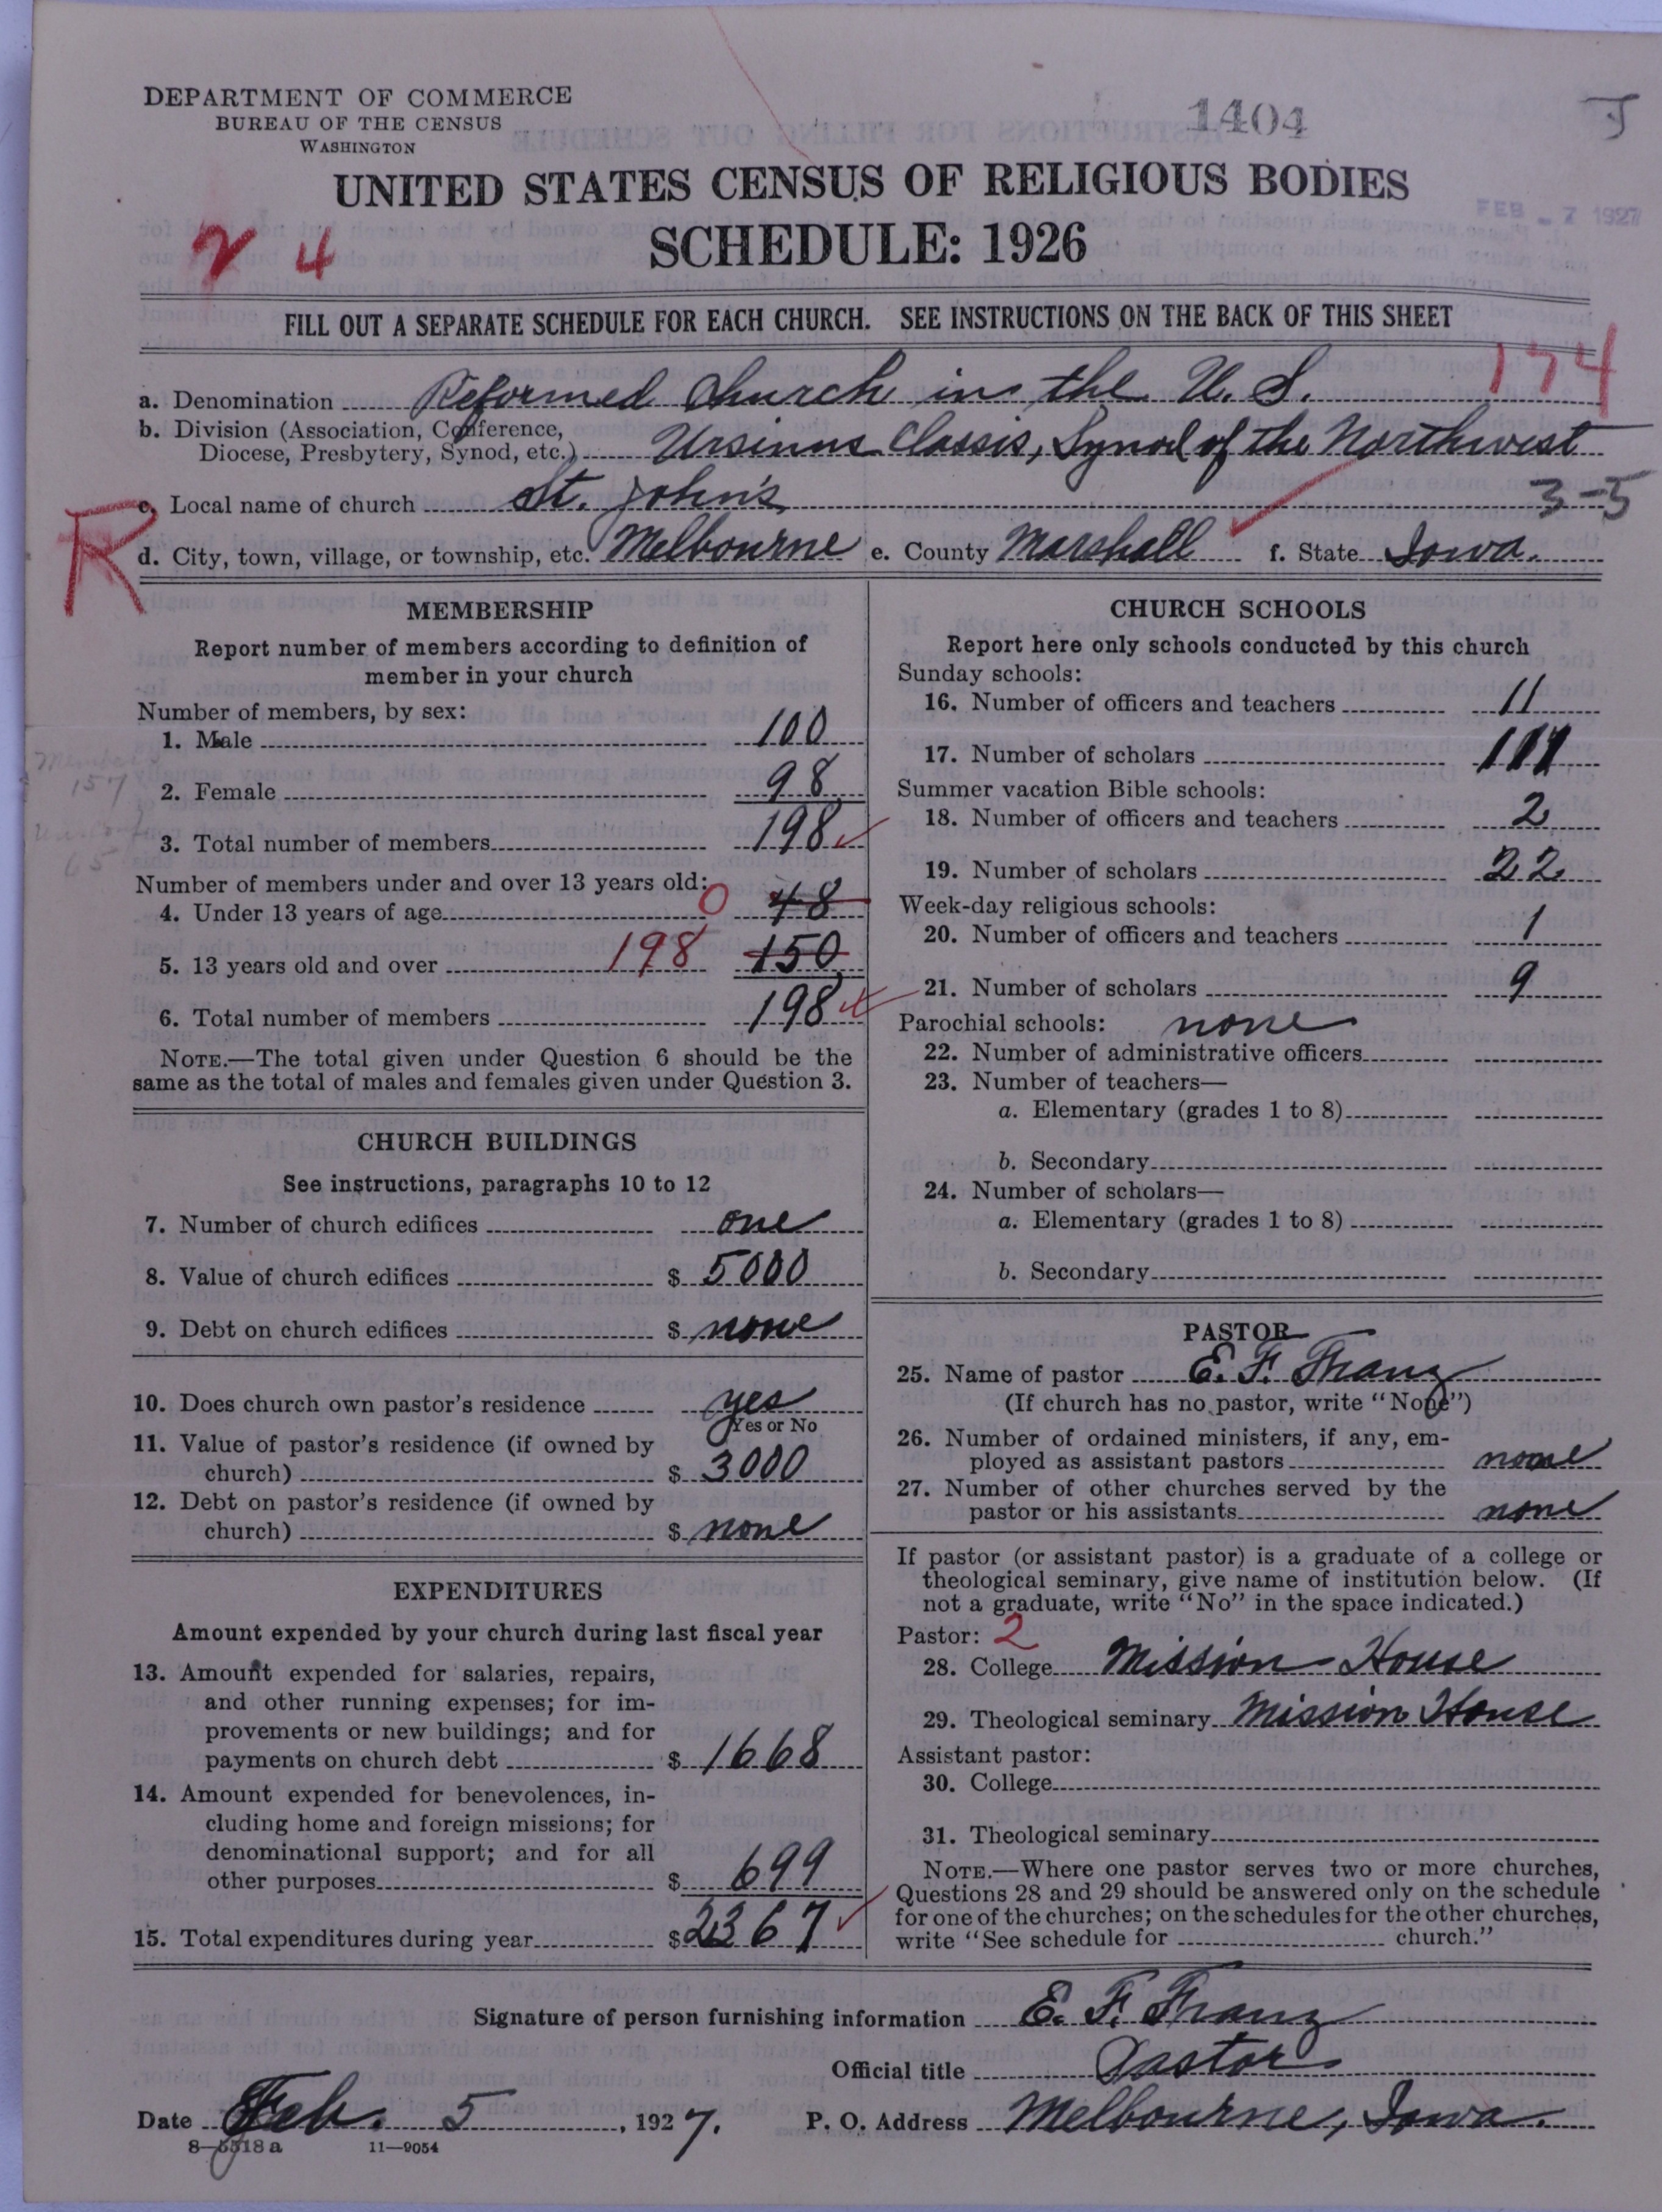 DEPARTMENT OF COMMERCE
BUREAU OF THE CENSUS
WASHINGTON
1404
J
UNITED STATES CENSUS OF RELIGIOUS BODIES
FEB - 7 1927
SCHEDULE: 1926
4
FILL OUT A SEPARATE SCHEDULE FOR EACH CHURCH. SEE INSTRUCTIONS ON THE BACK OF THIS SHEET
174
a. Denomination Reformed Church in the U. S.
b. Division (Association, Conference,
Diocese, Presbytery, Synod, etc.) Ursinus Classis, Synod of the Northwest
c. Local name of church St. John's
3-5
R
d. City, town, village, or township, etc. Melbourne e. County Marshall f. State Iowa.
MEMBERSHIP
Report number of members according to definition of
member in your church
Number of members, by sex:
1. Male 100
Members
157
2. Female 98
3. Total number of members 198
65
Number of members under and over 13 years old:
4. Under 13 years of age 0 48
5. 13 years old and over 198 150
6. Total number of members 198
NOTE.—The total given under Question 6 should be the
same as the total of males and females given under Question 3.
CHURCH BUILDINGS
See instructions, paragraphs 10 to 12
7. Number of church edifices one
8. Value of church edifices $ 5000
9. Debt on church edifices $ none
10. Does church own pastor's residence yes
Yes or No
11. Value of pastor's residence (if owned by
church) $ 3000
12. Debt on pastor's residence (if owned by
church) $ none
EXPENDITURES
Amount expended by your church during last fiscal year
13. Amount expended for salaries, repairs,
and other running expenses; for im-
provements or new buildings; and for
payments on church debt $ 1668
14. Amount expended for benevolences, in-
cluding home and foreign missions; for
denominational support; and for all
other purposes $ 699
15. Total expenditures during year $ 2367
CHURCH SCHOOLS
Report here only schools conducted by this church
Sunday schools:
16. Number of officers and teachers 11
17. Number of scholars
Summer vacation Bible schools:
18. Number of officers and teachers 2
19. Number of scholars 22
Week-day religious schools:
20. Number of officers and teachers 1
21. Number of scholars 9
Parochial schools: none
22. Number of administrative officers
23. Number of teachers—
a. Elementary (grades 1 to 8)
b. Secondary
24. Number of scholars—
a. Elementary (grades 1 to 8)
b. Secondary
PASTOR
25. Name of pastor E. F. Franz
(If church has no pastor, write "None")
26. Number of ordained ministers, if any, em-
ployed as assistant pastors none
27. Number of other churches served by the
pastor or his assistants none
If pastor (or assistant pastor) is a graduate of a college or
theological seminary, give name of institution below. (If
not a graduate, write "No" in the space indicated.)
Pastor: 2
28. College Mission House
29. Theological seminary Mission House
Assistant pastor:
30. College
31. Theological seminary
NOTE.—Where one pastor serves two or more churches,
Questions 28 and 29 should be answered only on the schedule
for one of the churches; on the schedules for the other churches,
write "See schedule for church."
Signature of person furnishing information E. F. Franz
Official title Pastor
Date Feb. 5, 1927. P. O. Address Melbourne, Iowa.
8—5518a 11—9054